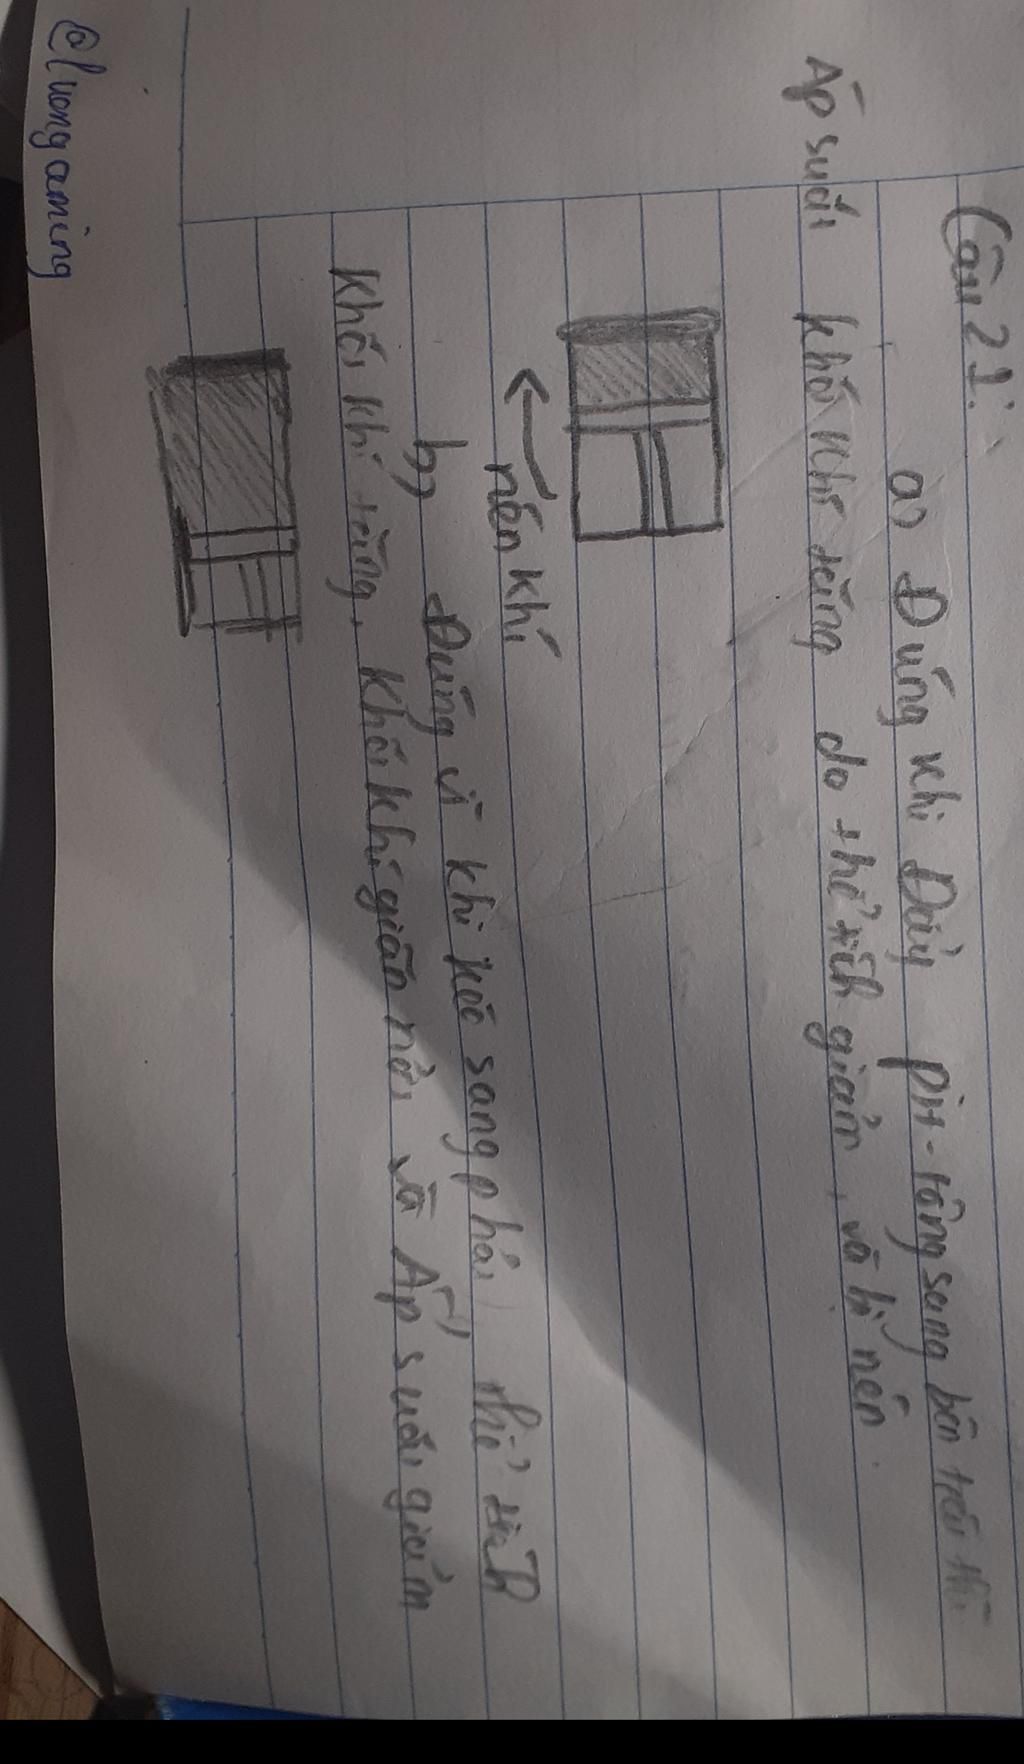 Câu 21:
a) Đúng khi Đẩy pit-tông sang bên trái thì
Áp suất khối khí tăng do thể tích giảm, và bị nén.
nén khí
b, Đúng vì khi kéo sang phải, thể tích
khối khí tăng, khối khí giãn nở, và Áp suất giảm
@luongaming